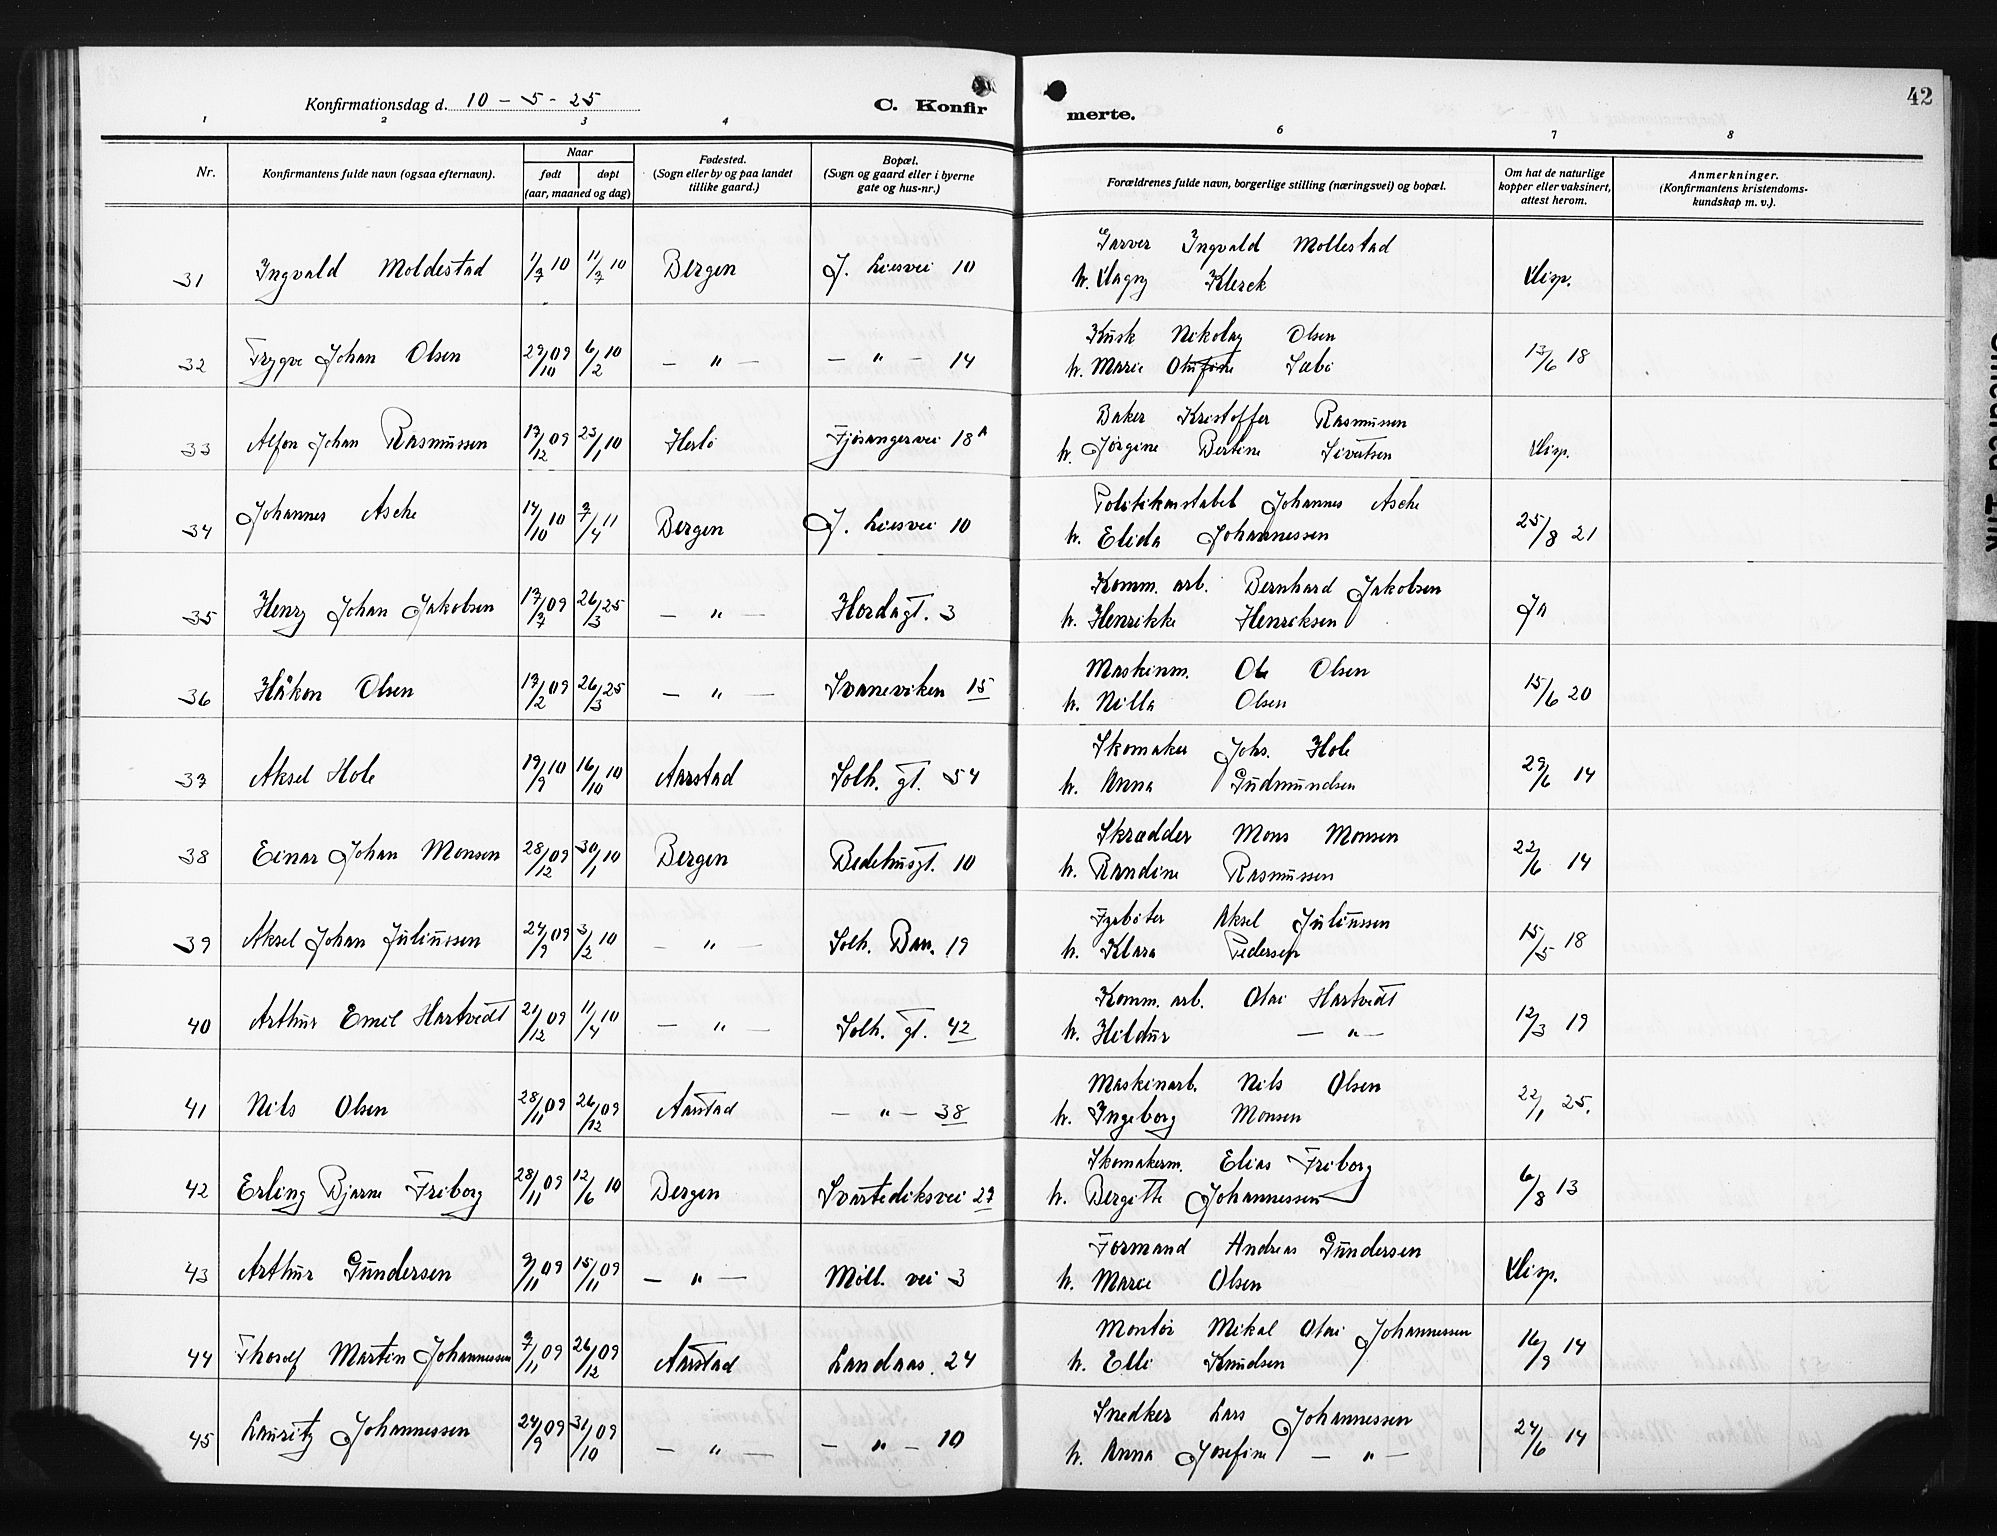 42
Konfirmationsdag d. 10 - 5 - 25
C. Konfir merte.
1 2 3 4 5 6 7 8
Nr. Konfirmantens fulde navn (ogsaa efternavn). Naar født døpt (aar, maaned og dag) Fødested. (Sogn eller by og paa landet tillike gaard.) Bopæl. (Sogn og gaard eller i byerne gate og hus-nr.) Forældrenes fulde navn, borgerlige stilling (næringsvei) og bopæl. Om hat de naturlige kopper eller vaksinert, attest herom. Anmerkninger. (Konfirmantens kristendomskundskap m. v.).
31 Ingvald Moldestad 1/7 10 11/7 10 Bergen J. Liesvei 10 Garver Ingvald Mollestad
h. Magny Klerck Disp.
32 Trygve Johan Olsen 29/10 09 6/2 10 — " — — " — 14 Kusk Nikolay Olsen
h. Marie Olufine Sæbø 13/6 18
33 Alfon Johan Rasmussen 17/12 09 23/1 10 Herlø Fjøsangervei 18A Baker Kristoffer Rasmussen
h. Jørgine Bertine Sivertsen Disp.
34 Johannes Asche 14/10 10 7/4 11 Bergen J. Liesvei 10 Politikonstabel Johannes Asche
h. Elida Johannessen 25/8 21
35 Henry Johan Jakobsen 17/7 09 26/3 25 — " — Hordagt. 3 Komm. arb. Bernhard Jakobsen
h. Henrikke Henriksen Ja
36 Håkon Olsen 17/2 09 26/3 25 — " — Svaneviken 15 Maskinm. Ole Olsen
h. Nilla Olsen 15/6 20
37 Aksel Hole 19/9 10 16/10 10 Aarstad Solh. gt. 54 Skomaker Johs. Hole
h. Anna Gudmundsen 29/6 14
38 Einar Johan Monsen 28/12 09 30/1 10 Bergen Bedehusgt. 10 Skrædder Mons Monsen
h. Randine Rasmussen 22/6 14
39 Aksel Johan Juliussen 24/9 09 3/2 10 — " — Solh. Ban. 19 Fyrbøter Aksel Juliussen
h. Klara Pedersen 15/5 18
40 Arthur Emil Hartvedt 21/12 09 11/4 10 — " — Solh. gt. 42 Komm. arb. Olai Hartvedt
h. Hildur — " — 12/3 19
41 Nils Olsen 28/11 09 26/12 09 Aarstad — " — 38 Maskinarb. Nils Olsen
h. Ingeborg Monsen 22/1 25.
42 Erling Bjarne Friborg 28/11 09 12/6 10 Bergen Svartediksvei 27 Skomakerm. Elias Friborg
h. Bergitte Johannessen 6/8 13
43 Arthur Gundersen 9/11 09 15/11 09 — " — Møll. vei 3 Formand Andreas Gundersen
h. Marie Olsen Disp.
44 Thorolf Martin Johannessen 7/11 09 26/12 09 Aarstad Landaas. 24 Montør Mikal Olai Johannessen
h. Elli Knudsen 16/9 14
45 Lauritz Johannessen 24/9 09 31/10 09 — " — — " — 10 Snedker Lars Johannessen
h. Anna Josefine — " — 24/6 14